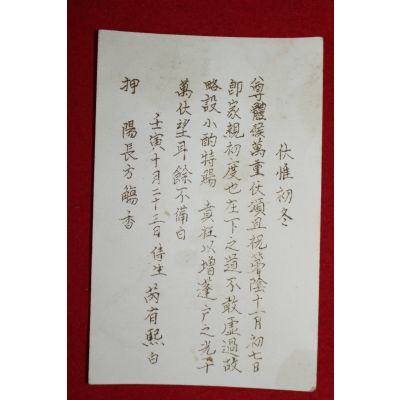 伏惟初冬
尊體候萬重伏頌且祝第陰十一月初七日
卽家親初度也在下之道不敢虛過故
略設小酌特賜 賁枉以增蓬戶之光千
萬伏望耳餘不備白
壬寅十月二十三日侍生 芮有熙白
押 陽長方觴香